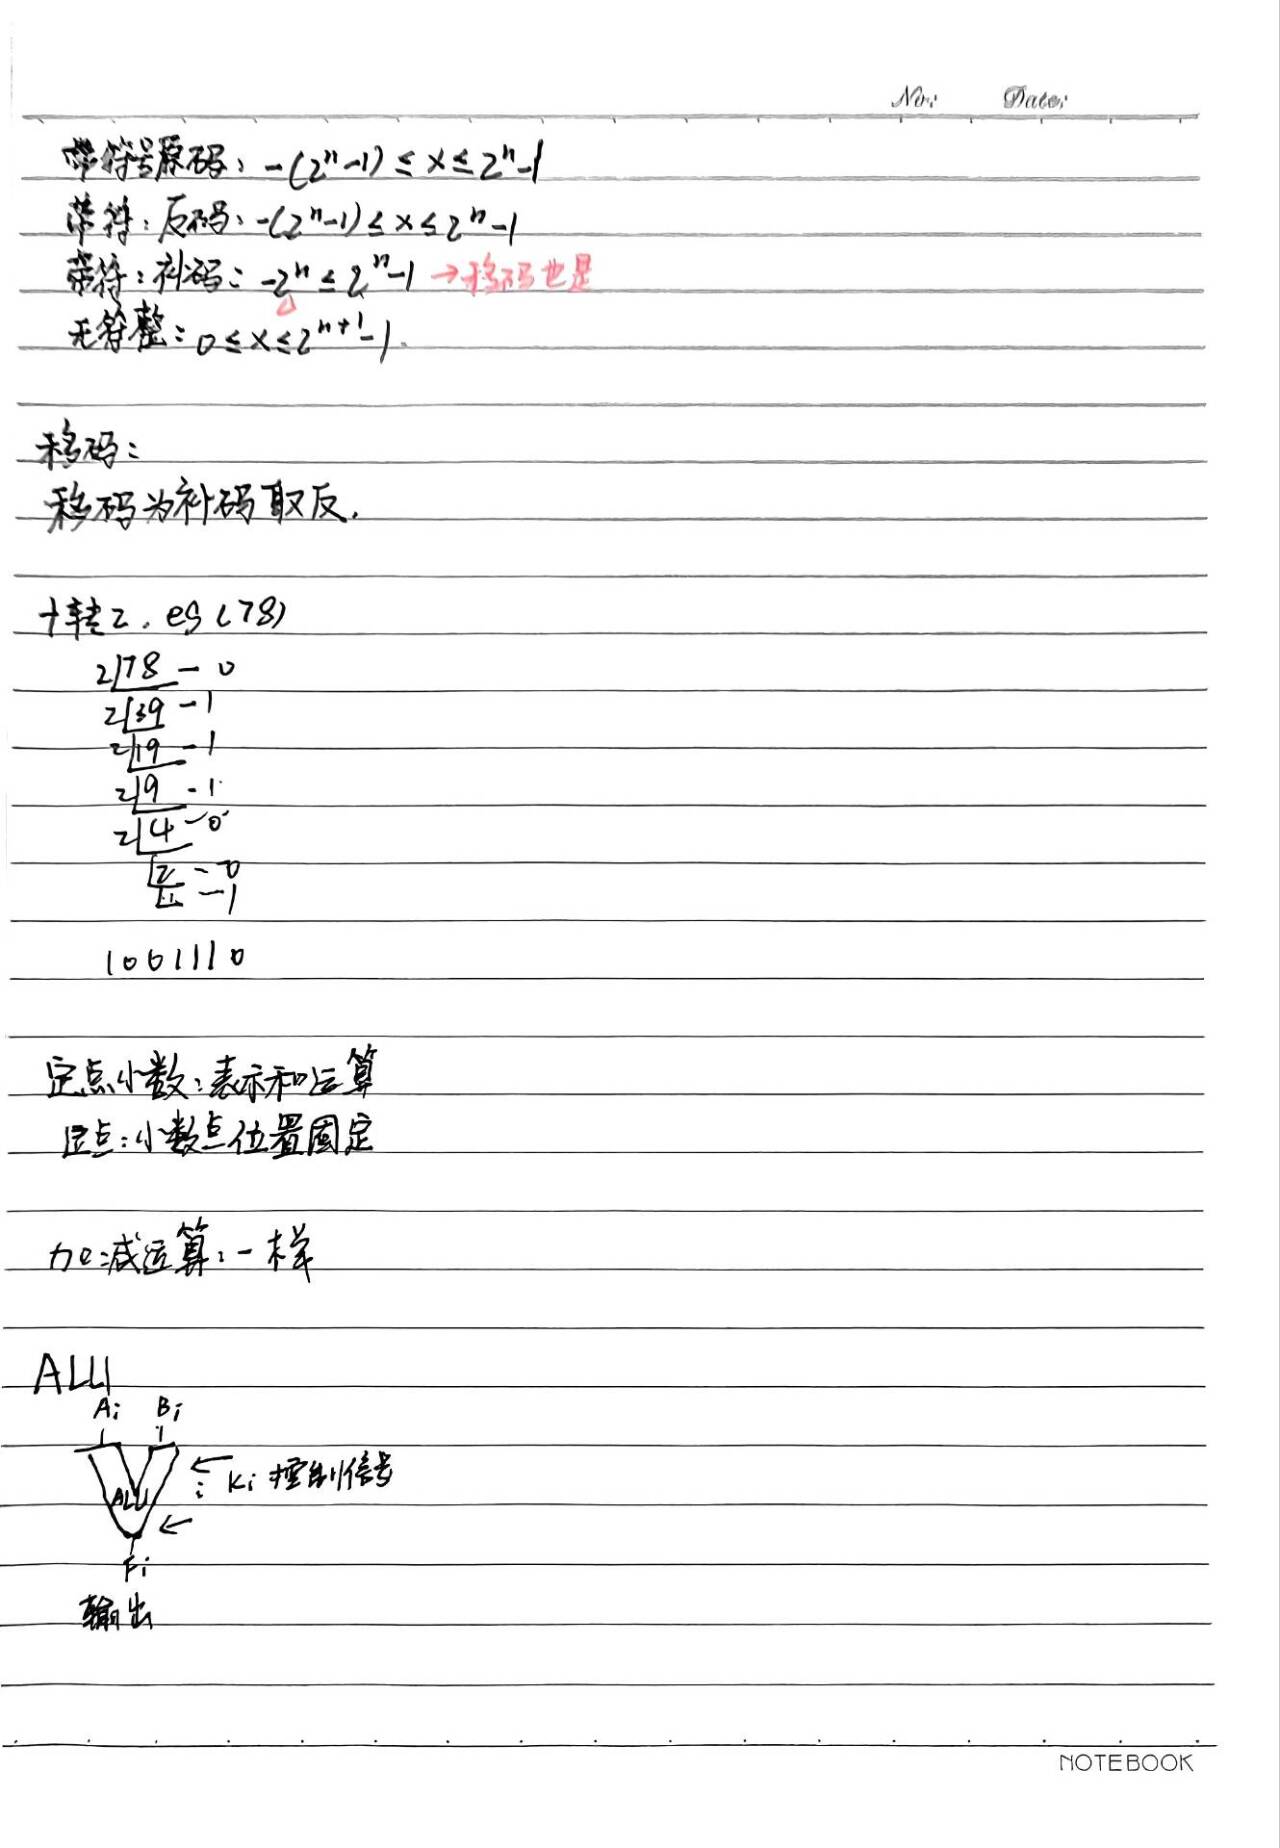 No: Date:
带符号原码: -(2ⁿ-1) ≤ x ≤ 2ⁿ-1
带符: 反码: -(2ⁿ-1) ≤ x ≤ 2ⁿ-1
带符: 补码: -2ⁿ ≤ 2ⁿ-1 → 移码也是
无符整: 0 ≤ x ≤ 2ⁿ⁺¹-1.
移码:
移码为补码取反.
十转2. eg (78)
2|78 - 0
2|39 - 1
2|19 - 1
2|9 - 1
2|4 - 0
|2 - 0
1 - 1
1001110
定点小数: 表示和运算
定点: 小数点位置固定
加减运算: 一样
ALU
Ai Bi
← Ki 控制信号
ALU
←
Fi
输出
NOTEBOOK